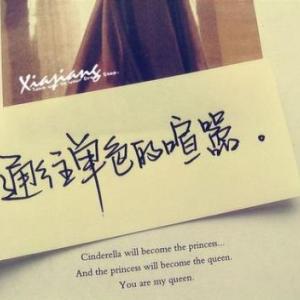 Xiajiang
通往单色的喧嚣。
Cinderella will become the princess...
And the princess will become the queen.
You are my queen.